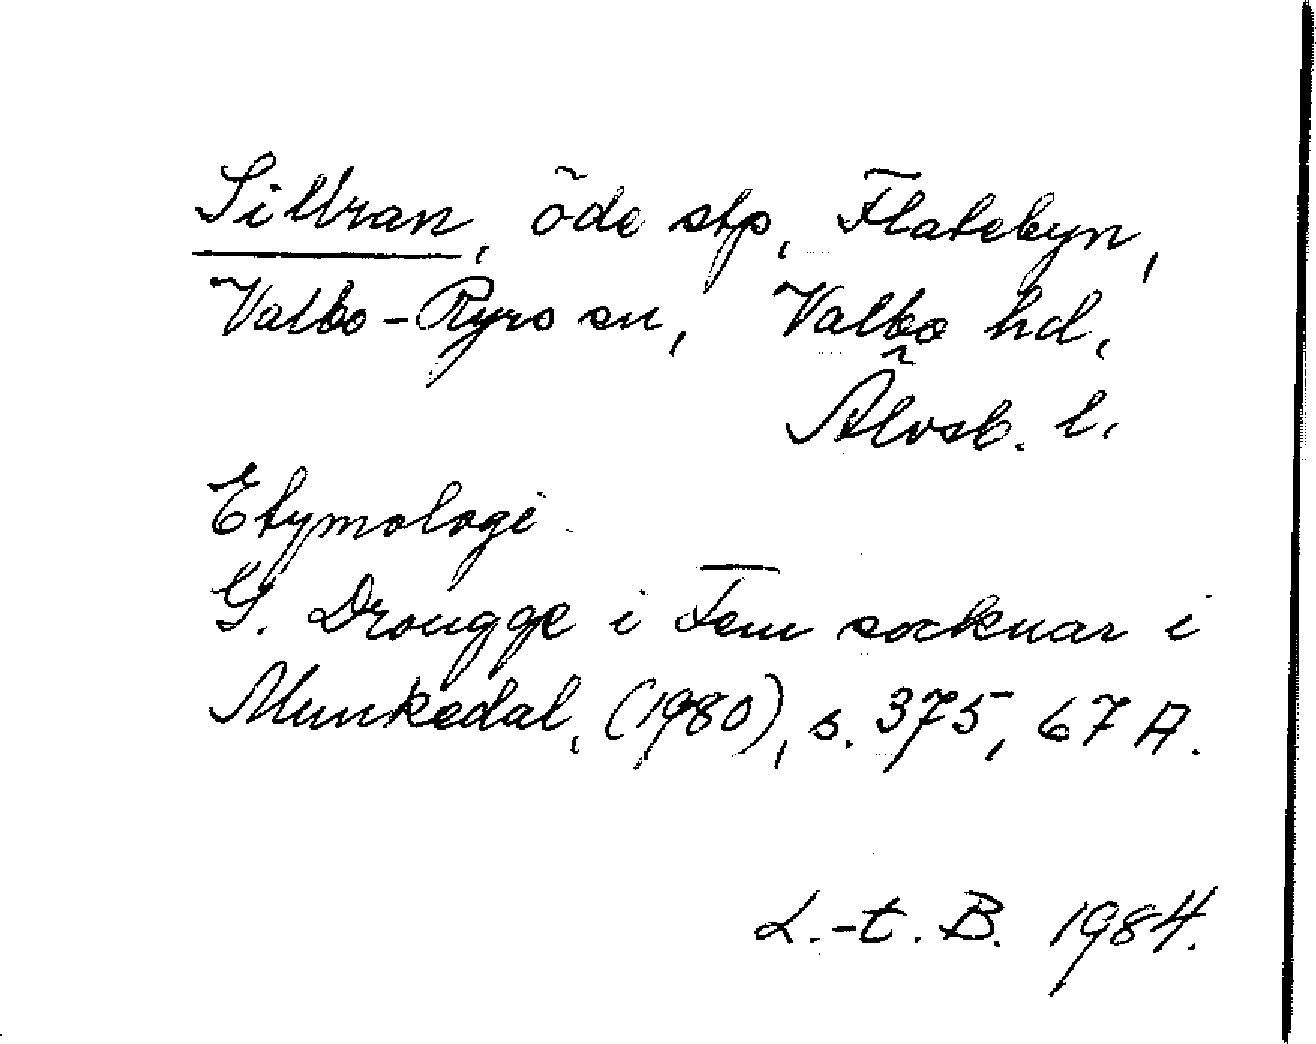 Sillran, öde stp, Flatebyn,
Valbo-Ryrs sn, Valbo hd,
Älvsb. l.
Etymologi
G. Drougge i Fem socknar i
Munkedal, (1980), s. 375, 67 A.
L.-t. B. 1984.